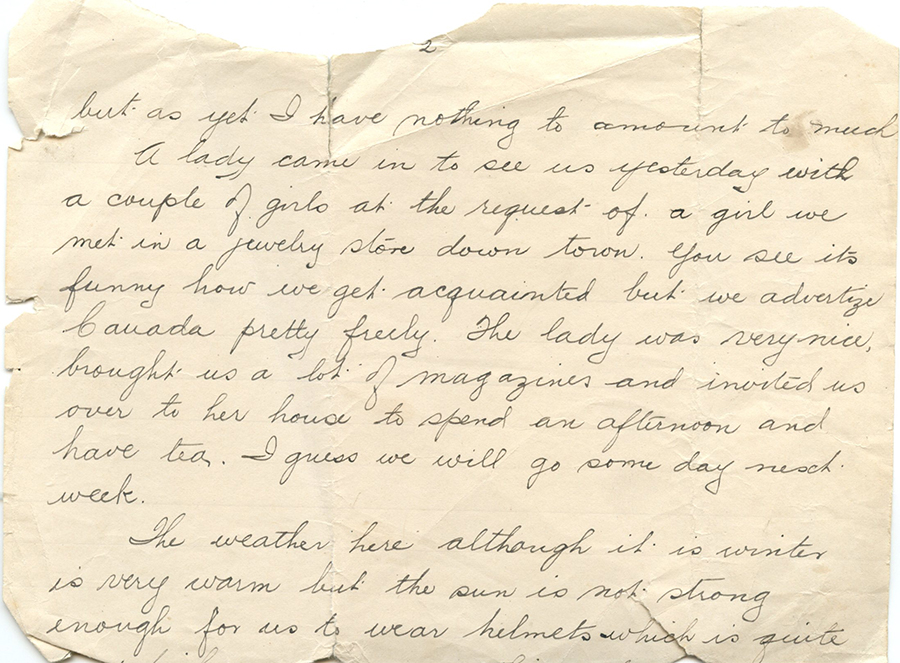 2
but as yet I have nothing to amount to much
A lady came in to see us yesterday with
a couple of girls at the request of a girl we
met in a jewelry store down town. You see its
funny how we get acquainted but we advertize
Canada pretty freely. The lady was very nice,
brought us a lot of magazines and invited us
over to her house to spend an afternoon and
have tea. I guess we will go some day next
week.
The weather here although it is winter
is very warm but the sun is not strong
enough for us to wear helmets which is quite